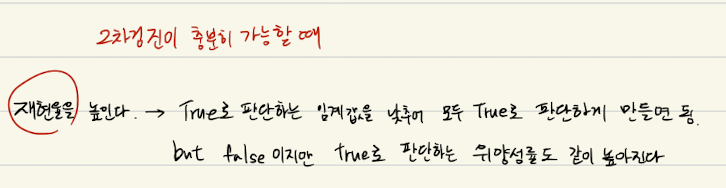 2차검진이 충분히 가능할 때
재현율을 높인다. → True로 판단하는 임계값을 낮추어 모두 True로 판단하게 만들면 됨.
but false 이지만 true로 판단하는 위양성률도 같이 높아진다